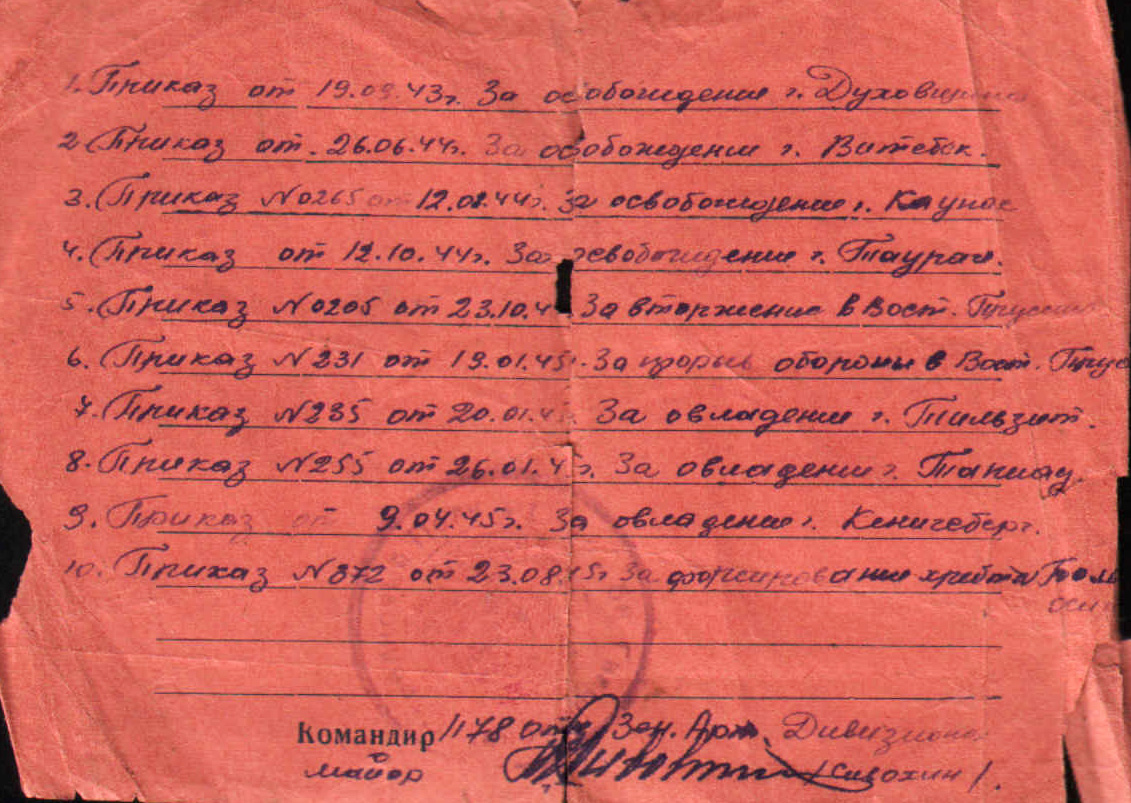 1. Приказ от 19.09.43г. За освобождение г. Духовщина
2. Приказ от. 26.06.44г. За освобождение г. Витебск.
3. Приказ №0265 от 12.08.44г. За освобождение г. Каунас
4. Приказ от 12.10.44г. За освобождение г. Таураге.
5. Приказ №0205 от 23.10.4 За вторжение в Вост. Пруссию
6. Приказ №231 от 19.01.45г. За прорыв обороны в Вост. Прус
7. Приказ №235 от 20.01.4 За овладение г. Тильзит.
8. Приказ №255 от 26.01.4 г. За овладение г. Тапиау.
9. Приказ от 9.04.45г. За овладение г. Кенигсберг.
10. Приказ №372 от 23.08.45г За форсирование хребта
Командир 1178 Зен. Арт. Дивизиона
майор /Сивохин/.